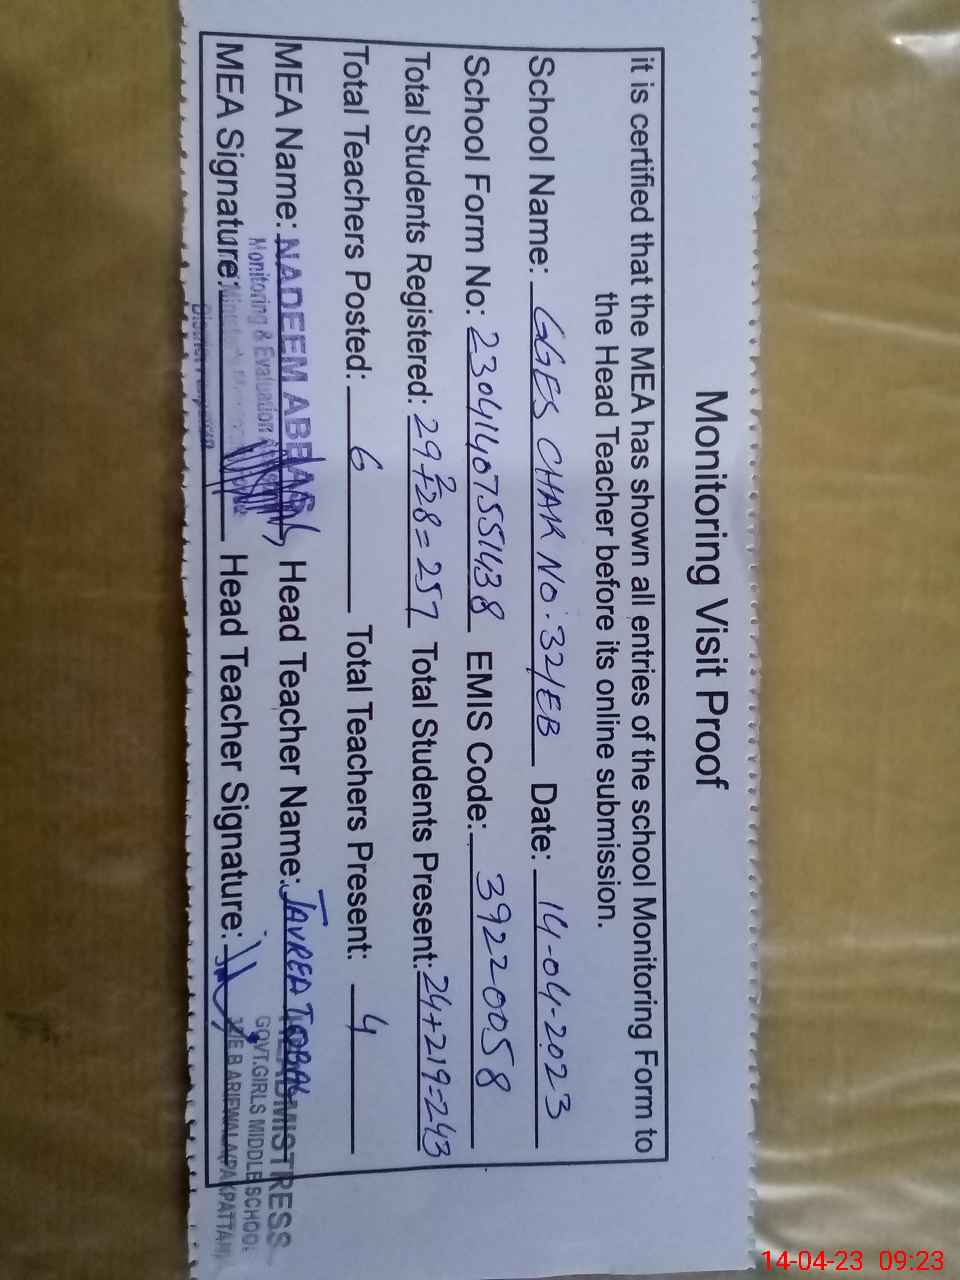 Monitoring Visit Proof
it is certified that the MEA has shown all entries of the school Monitoring Form to
the Head Teacher before its online submission.
School Name: GGES CHAK NO. 32/EB Date: 14-04-2023
School Form No: 23041407551438 EMIS Code: 39220058
Total Students Registered: 29+228=257 Total Students Present: 24+219=243
Total Teachers Posted: 6 Total Teachers Present: 4
MEA Name: NADEEM ABBAS Head Teacher Name: JAVREA IQBAL
HEADMISTRESS
Monitoring & Evaluation
GOVT.GIRLS MIDDLE SCHOOL
MEA Signature: Head Teacher Signature:
32/E B ARIFWALA(PAKPATTAN)
District
14-04-23 09:23